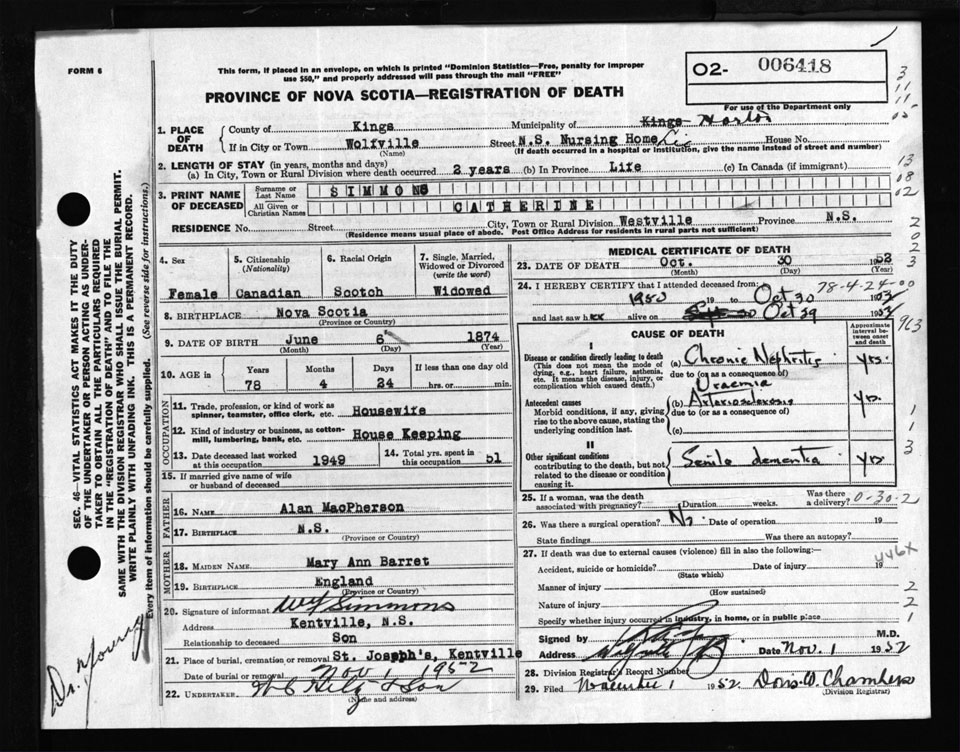 FORM 6
This form, if placed in an envelope, on which is printed "Dominion Statistics—Free, penalty for improper
use $50," and properly addressed will pass through the mail "FREE"
PROVINCE OF NOVA SCOTIA—REGISTRATION OF DEATH
02- 006418
For use of the Department only
1. PLACE OF DEATH
County of Kings Municipality of Kings
If in City or Town Wolfville Street N.S. Nursing Home House No.
(Name) (If death occurred in a hospital or institution, give the name instead of street and number)
2. LENGTH OF STAY (in years, months and days)
(a) In City, Town or Rural Division where death occurred 2 years (b) In Province Life (c) In Canada (if immigrant)
3. PRINT NAME OF DECEASED
Surname or Last Name SIMMONS
All Given or Christian Names CATHERINE
RESIDENCE No. Street City, Town or Rural Division Westville Province N.S.
(Residence means usual place of abode. Post Office Address for residents in rural parts not sufficient)
4. Sex 5. Citizenship (Nationality) 6. Racial Origin 7. Single, Married, Widowed or Divorced (write the word)
Female Canadian Scotch Widowed
8. BIRTHPLACE Nova Scotia
(Province or Country)
9. DATE OF BIRTH June 6 1874
(Month) (Day) (Year)
10. AGE in Years Months Days If less than one day old
78 4 24 hrs. or min.
OCCUPATION
11. Trade, profession, or kind of work as
spinner, teamster, office clerk, etc. Housewife
12. Kind of industry or business, as cotten-
mill, lumbering, bank, etc. House Keeping
13. Date deceased last worked at this occupation 1949 14. Total yrs. spent in this occupation 51
15. If married give name of wife
or husband of deceased
FATHER
16. NAME Alan MacPherson
17. BIRTHPLACE N.S.
(Province or Country)
MOTHER
18. MAIDEN NAME Mary Ann Barret
19. BIRTHPLACE England
(Province or Country)
20. Signature of informant Simmons
Address Kentville, N.S.
Relationship to deceased Son
21. Place of burial, cremation or removal St. Joseph's, Kentville
Date of burial or removal Nov 1 1952
22. UNDERTAKER & Son
(Name and address)
MEDICAL CERTIFICATE OF DEATH
23. DATE OF DEATH Oct. 30 1952
(Month) (Day) (Year)
24. I HEREBY CERTIFY that I attended deceased from: 78-4-24-00
1950 19 to Oct 30 1952
and last saw h alive on Oct 29 1952
CAUSE OF DEATH
Approximate interval between onset and death
I
Disease or condition directly leading to death
(This does not mean the mode of
dying, e.g., heart failure, asthenia,
etc. It means the disease, injury, or
complication which caused death.)
(a) Chronic Nephritis yrs.
due to (or as a consequence of)
Uraemia
Antecedent causes
Morbid conditions, if any, giving
rise to the above cause, stating the
underlying condition last.
(b) Arteriosclerosis yrs.
due to (or as a consequence of)
(c)
II
Other significant conditions
contributing to the death, but not
related to the disease or condition
causing it.
Senile dementia yrs
25. If a woman, was the death
associated with pregnancy? Duration weeks. Was there a delivery? 0-30-2
26. Was there a surgical operation? No. Date of operation 19
State findings Was there an autopsy?
27. If death was due to external causes (violence) fill in also the following:—
446X
Accident, suicide or homicide? Date of injury 19
(State which)
Manner of injury
(How sustained)
Nature of injury
Specify whether injury occurred in industry, in home, or in public place
Signed by M.D.
Address Date Nov. 1 1952
28. Division Registrar's Record Number
29. Filed 1 1952 Doris W. Chambers
(Division Registrar)
SEC. 46—VITAL STATISTICS ACT MAKES IT THE DUTY
OF THE UNDERTAKER OR PERSON ACTING AS UNDER-
TAKER TO OBTAIN ALL THE PARTICULARS REQUIRED
IN THE "REGISTRATION OF DEATH" AND TO FILE THE
SAME WITH THE DIVISION REGISTRAR WHO SHALL ISSUE THE BURIAL PERMIT.
WRITE PLAINLY WITH UNFADING INK. THIS IS A PERMANENT RECORD.
Every item of information should be carefully supplied. (See reverse side for instructions.)
3
11
13
08
02
2
0
2
3
963
1
1
3
2
2
1